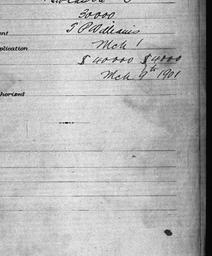 30000
ent J P Williams
plication Mch 1
$40000 $4000
Mch 9th 1901
thorized